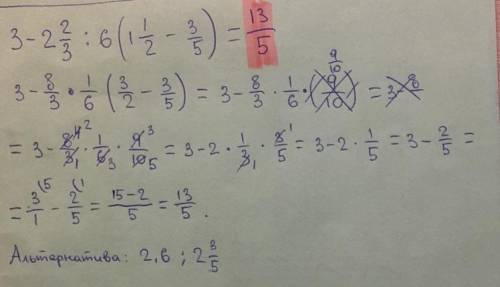 3 - 2 2/3 : 6 (1 1/2 - 3/5) = 13/5
3 - 8/3 · 1/6 (3/2 - 3/5) = 3 - 8/3 · 1/6 · (9/10) 9/10 = 3 - 8
= 3 - 8 4 2/3 1 · 1/6 3 · 9 3/10 5 = 3 - 2 · 1/3 1 · 3 1/5 = 3 - 2 · 1/5 = 3 - 2/5 =
= 3/1 (5 - 2/5 (1 = 15-2/5 = 13/5 .
Альтернатива: 2,6 ; 2 3/5